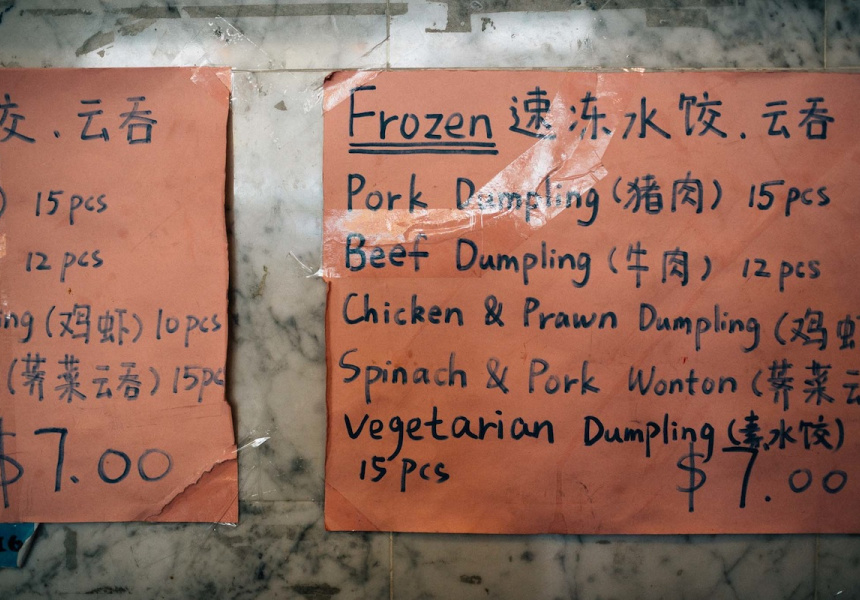 、云吞
15 pcs
12 pcs
(鸡虾) 10 pcs
(荠菜云吞) 15pc
$7.00
16
Frozen 速冻水饺、云吞
Pork Dumpling (猪肉) 15 pcs
Beef Dumpling (牛肉) 12 pcs
Chicken & Prawn Dumpling (鸡虾
Spinach & Pork Wonton (荠菜云
Vegetarian Dumpling (素水饺)
15 pcs
$7.00